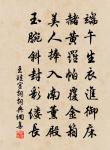 端午生衣進御床
赭黃羅帕覆金箱
美人捧入南薰殿
玉腕斜封彩縷長
王珪宮詞